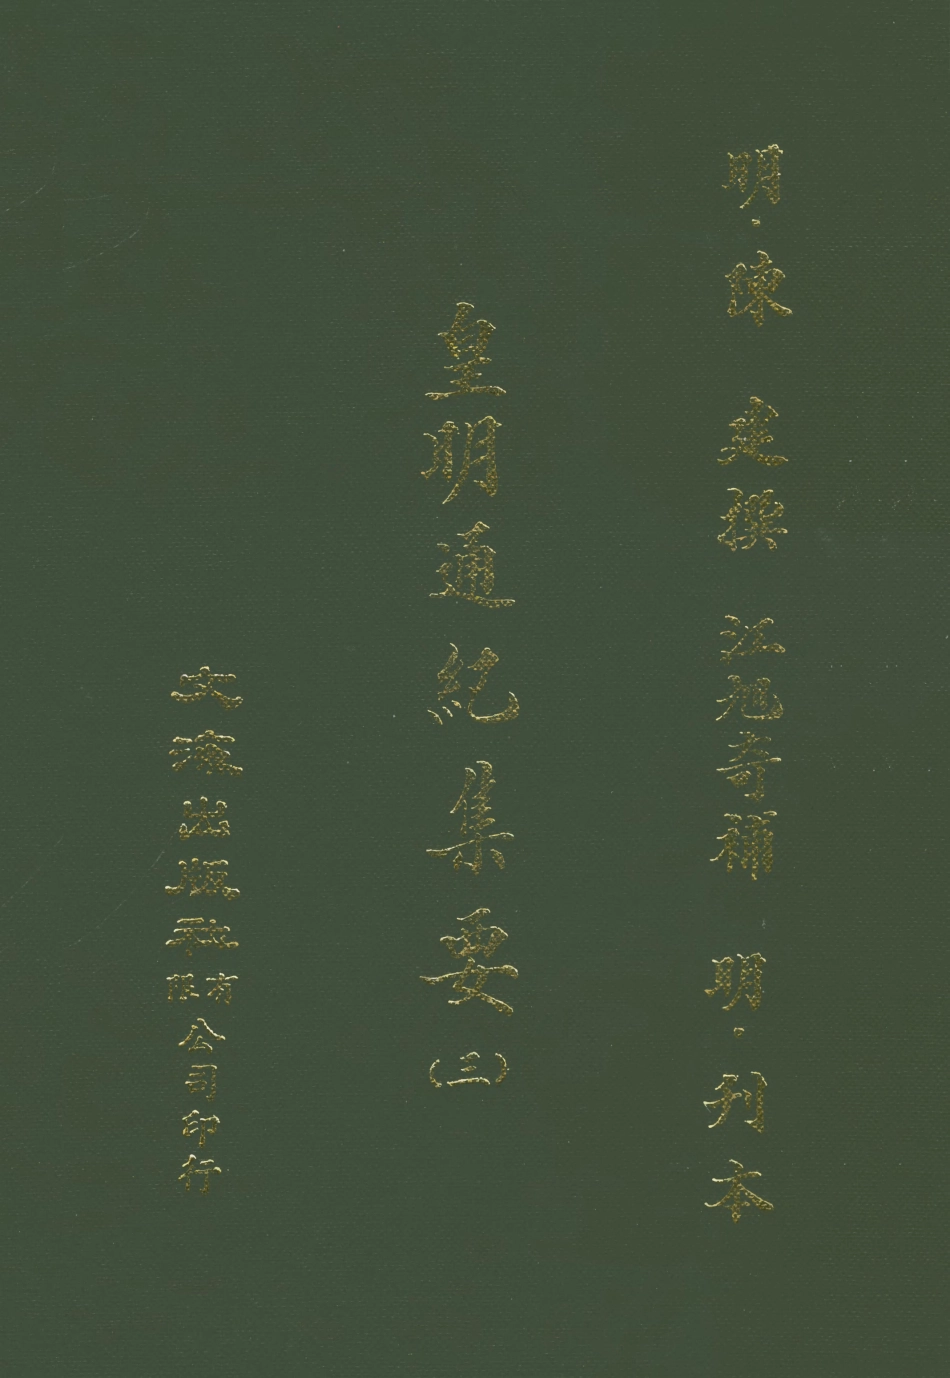 明·陳 建撰 江旭奇補 明·刋本
皇明通紀集要(三)
文海出版社有限公司印行